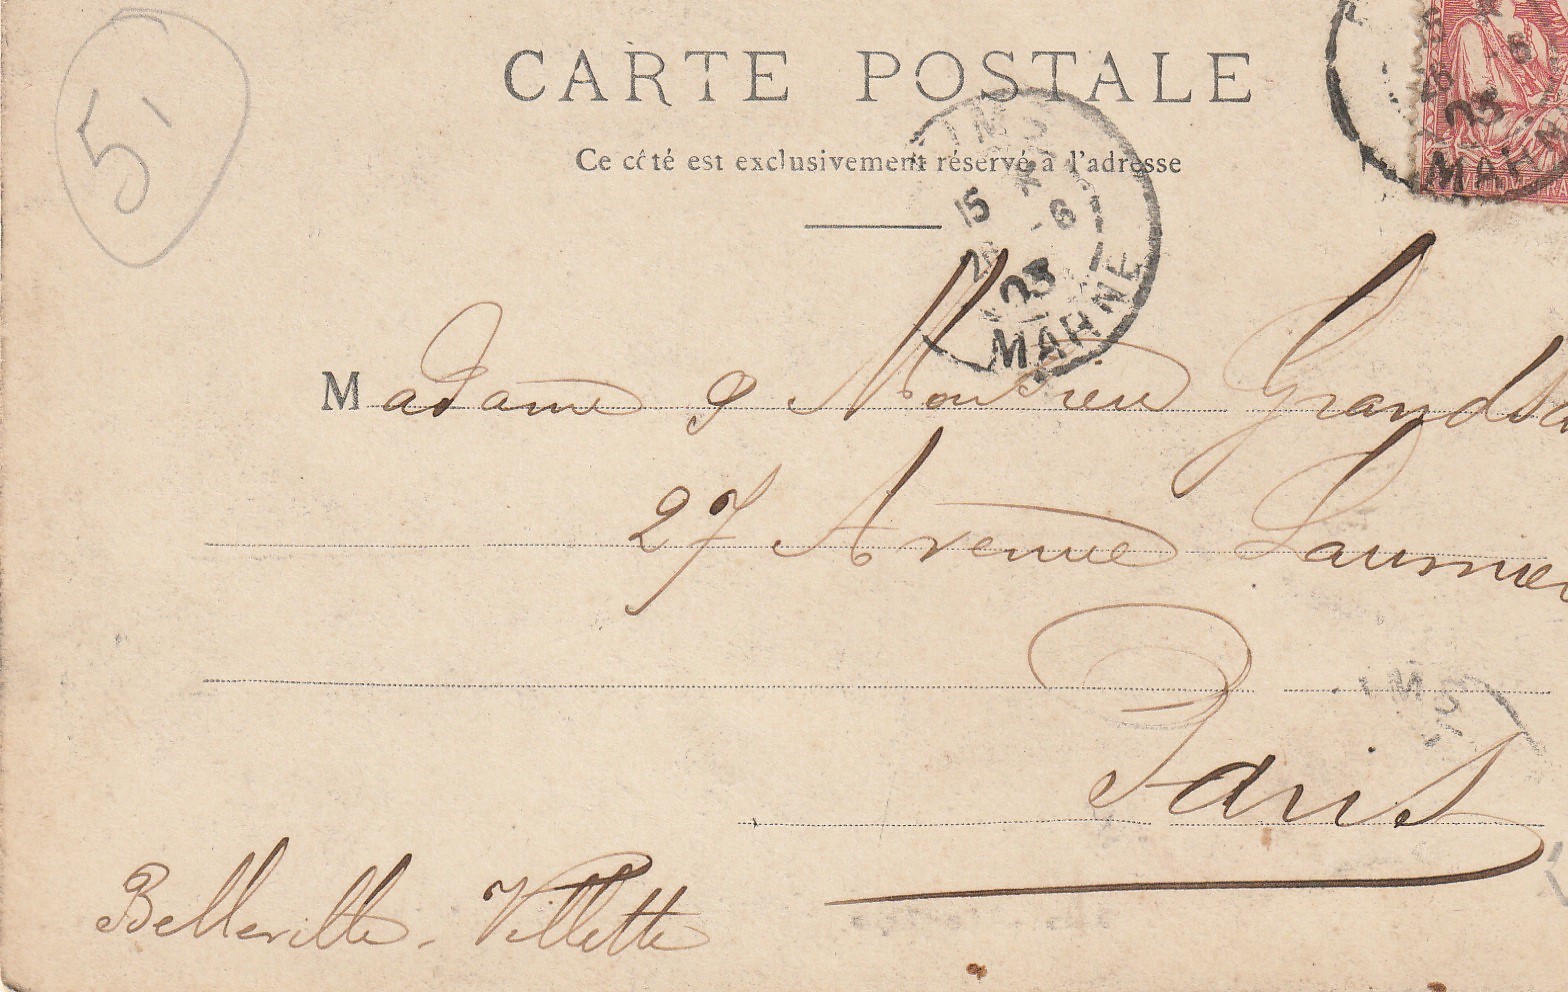 5,
CARTE POSTALE
Ce côté est exclusivement réservé à l'adresse
IMS
15
-6
03
MARNE
-6
03
MARN
Madame & Monsieur
27 Avenue Laumier
Paris
IMS
Belleville - Villette